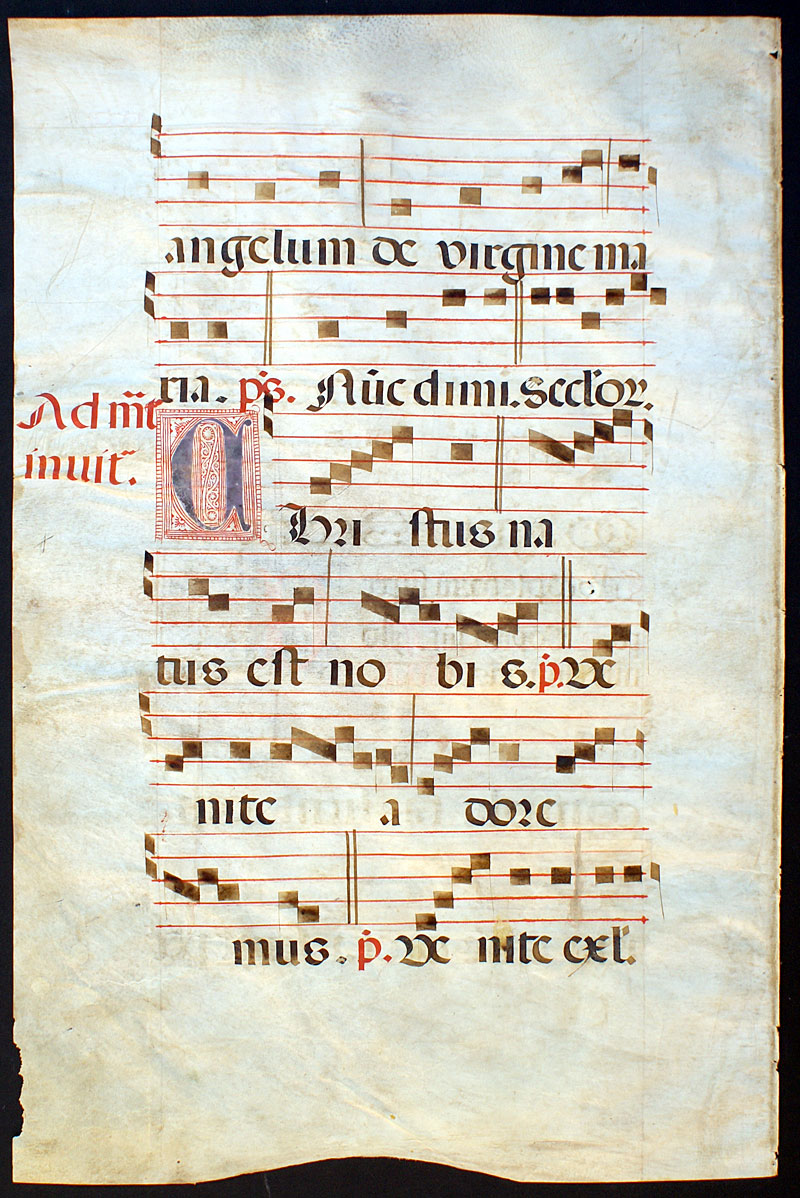 angelum de virgine ma
ria. ps. Nūc dimi. Seclor.
Ad mt
inuit.
Christus na
tus est no bis. p. Ve
nite adore
mus. p. Ve nite exl.